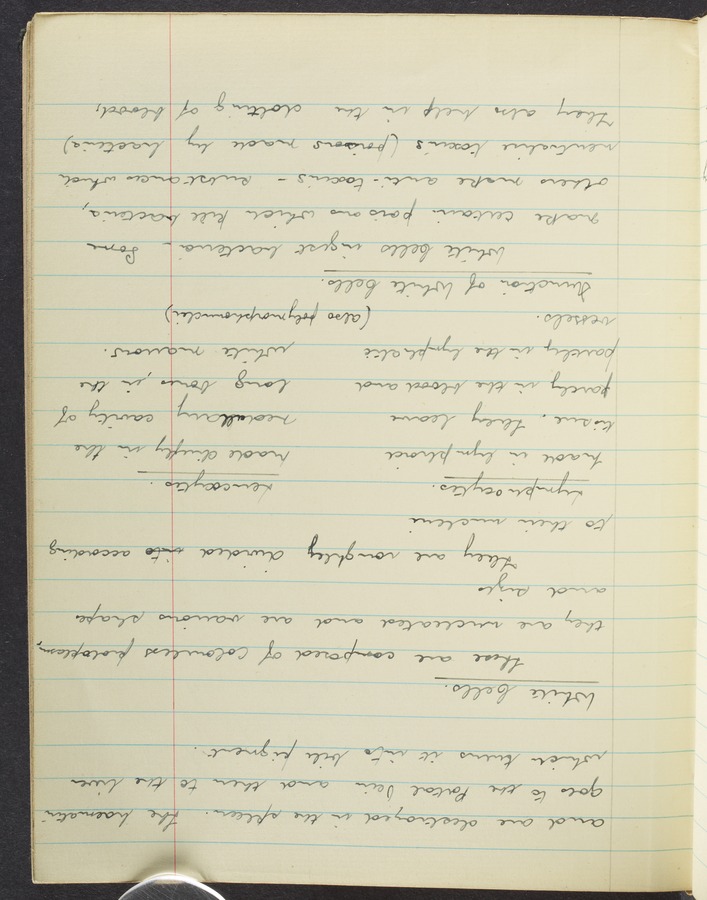 and are destroyed in the spleen. The haematin
goes to the Portal Vein and then to the liver
which turns it into bile pigment.
White Cells.
These are composed of Colourless protoplasm,
they are nucleated and are various shapes
and sizes
They are roughly divided into according
to their nuclei
Lymphocytes.
made in lymphoid
tissue. They leave
partly in the blood and
partly in the lymphatic
vessels.
Leucocytes.
made chiefly in the
medullary cavity of
long bones, in the
white marrow.
(also polymorphonuclei)
Function of White Cells.
White Cells ingest bacteria - Some
make certain poisons which kill bacteria,
others make anti-toxins - substances which
neutralise toxins (poisons made by bacteria)
They also help in the clotting of blood,